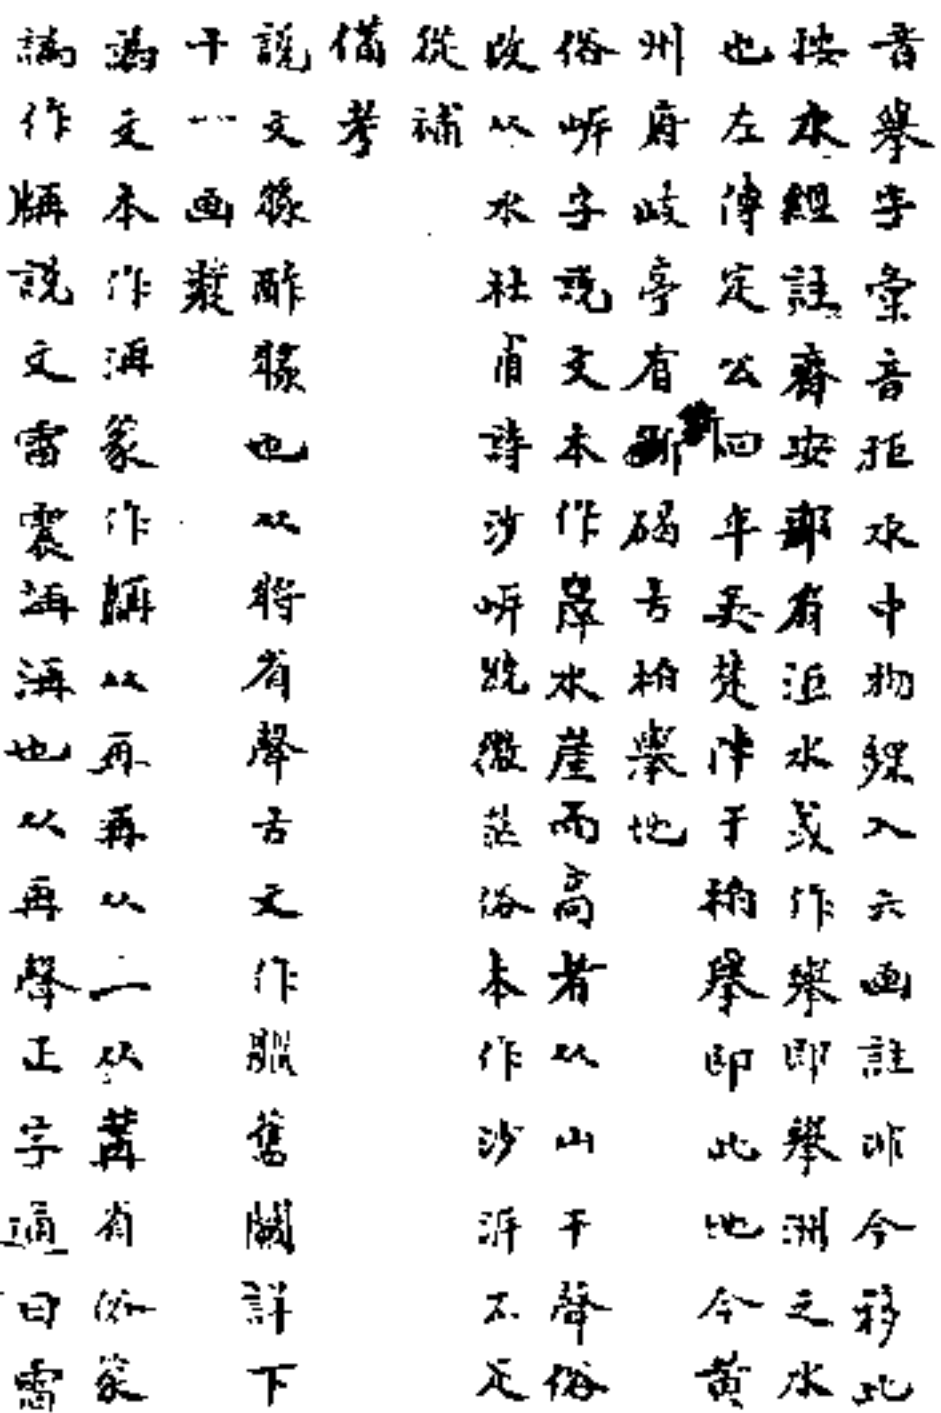 音舉字彙音拒水中物緥入六画註非今移此
按水經註齊安郡有洰水或作舉即舉洲之水
也左傳定公四年吳楚陣于柏舉即此地今黃
州府岐亭有斷碣古柏舉地
俗㟁字說文本作岸水崖而高者从山干聲俗
改从水杜甫詩沙㟁跷微茫俗本作沙汧不足
從補
備考
說文䉷酢䤅也从將省聲古文作𤖅舊闕詳下
十一画漿
譌文本作洅篆作稱从再再从一从冓省俗篆
譌作㸤說文雷震洅洅也从再聲正字通曰雷